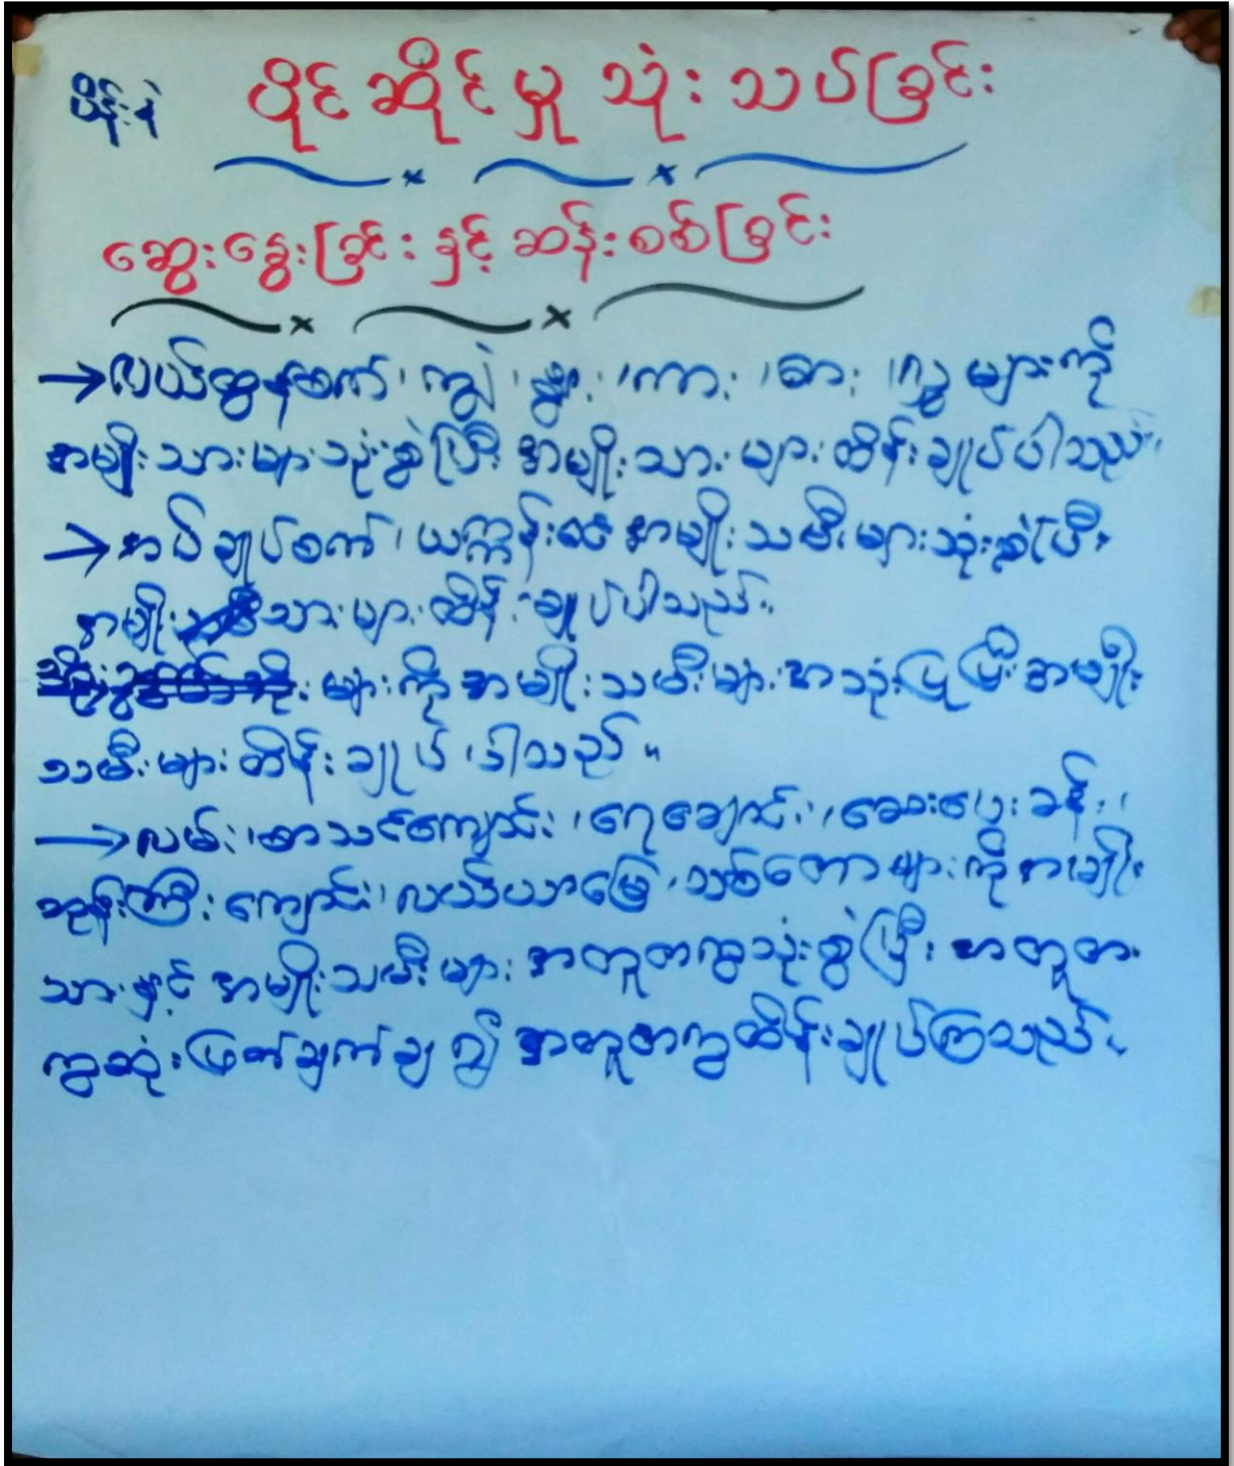 ပိန်းနဲ ပိုင်ဆိုင်မှု သုံးသပ်ခြင်း
ဆွေးနွေးခြင်းနှင့် ဆန်းစစ်ခြင်း
→လယ်ထွန်စက်၊ ကျွဲ၊ နွား၊ ကား၊ ဓား၊ လွှ များကို
အမျိုးသားများသုံးစွဲပြီး အမျိုးသားများထိန်းချုပ်ပါသည်။
→အပ်ချုပ်စက်၊ ယက္ကန်းစင် အမျိုးသမီးများသုံးစွဲပြီး
အမျိုးသားများထိန်းချုပ်ပါသည်။
များကို အမျိုးသမီးများအသုံးပြုပြီး အမျိုး
သမီးများထိန်းချုပ်ပါသည်။
→လမ်း၊ စာသင်ကျောင်း၊ ရေချောင်း၊ ဆေးပေးခန်း၊
ဘုန်းကြီးကျောင်း၊ လယ်ယာမြေ၊ သစ်တောများကိုအမျိုး
သားနှင့် အမျိုးသမီးများ အတူတကွသုံးစွဲပြီး အတူတ
ကွဆုံးဖြတ်ချက်ချ၍ အတူတကွထိန်းချုပ်ကြသည်။